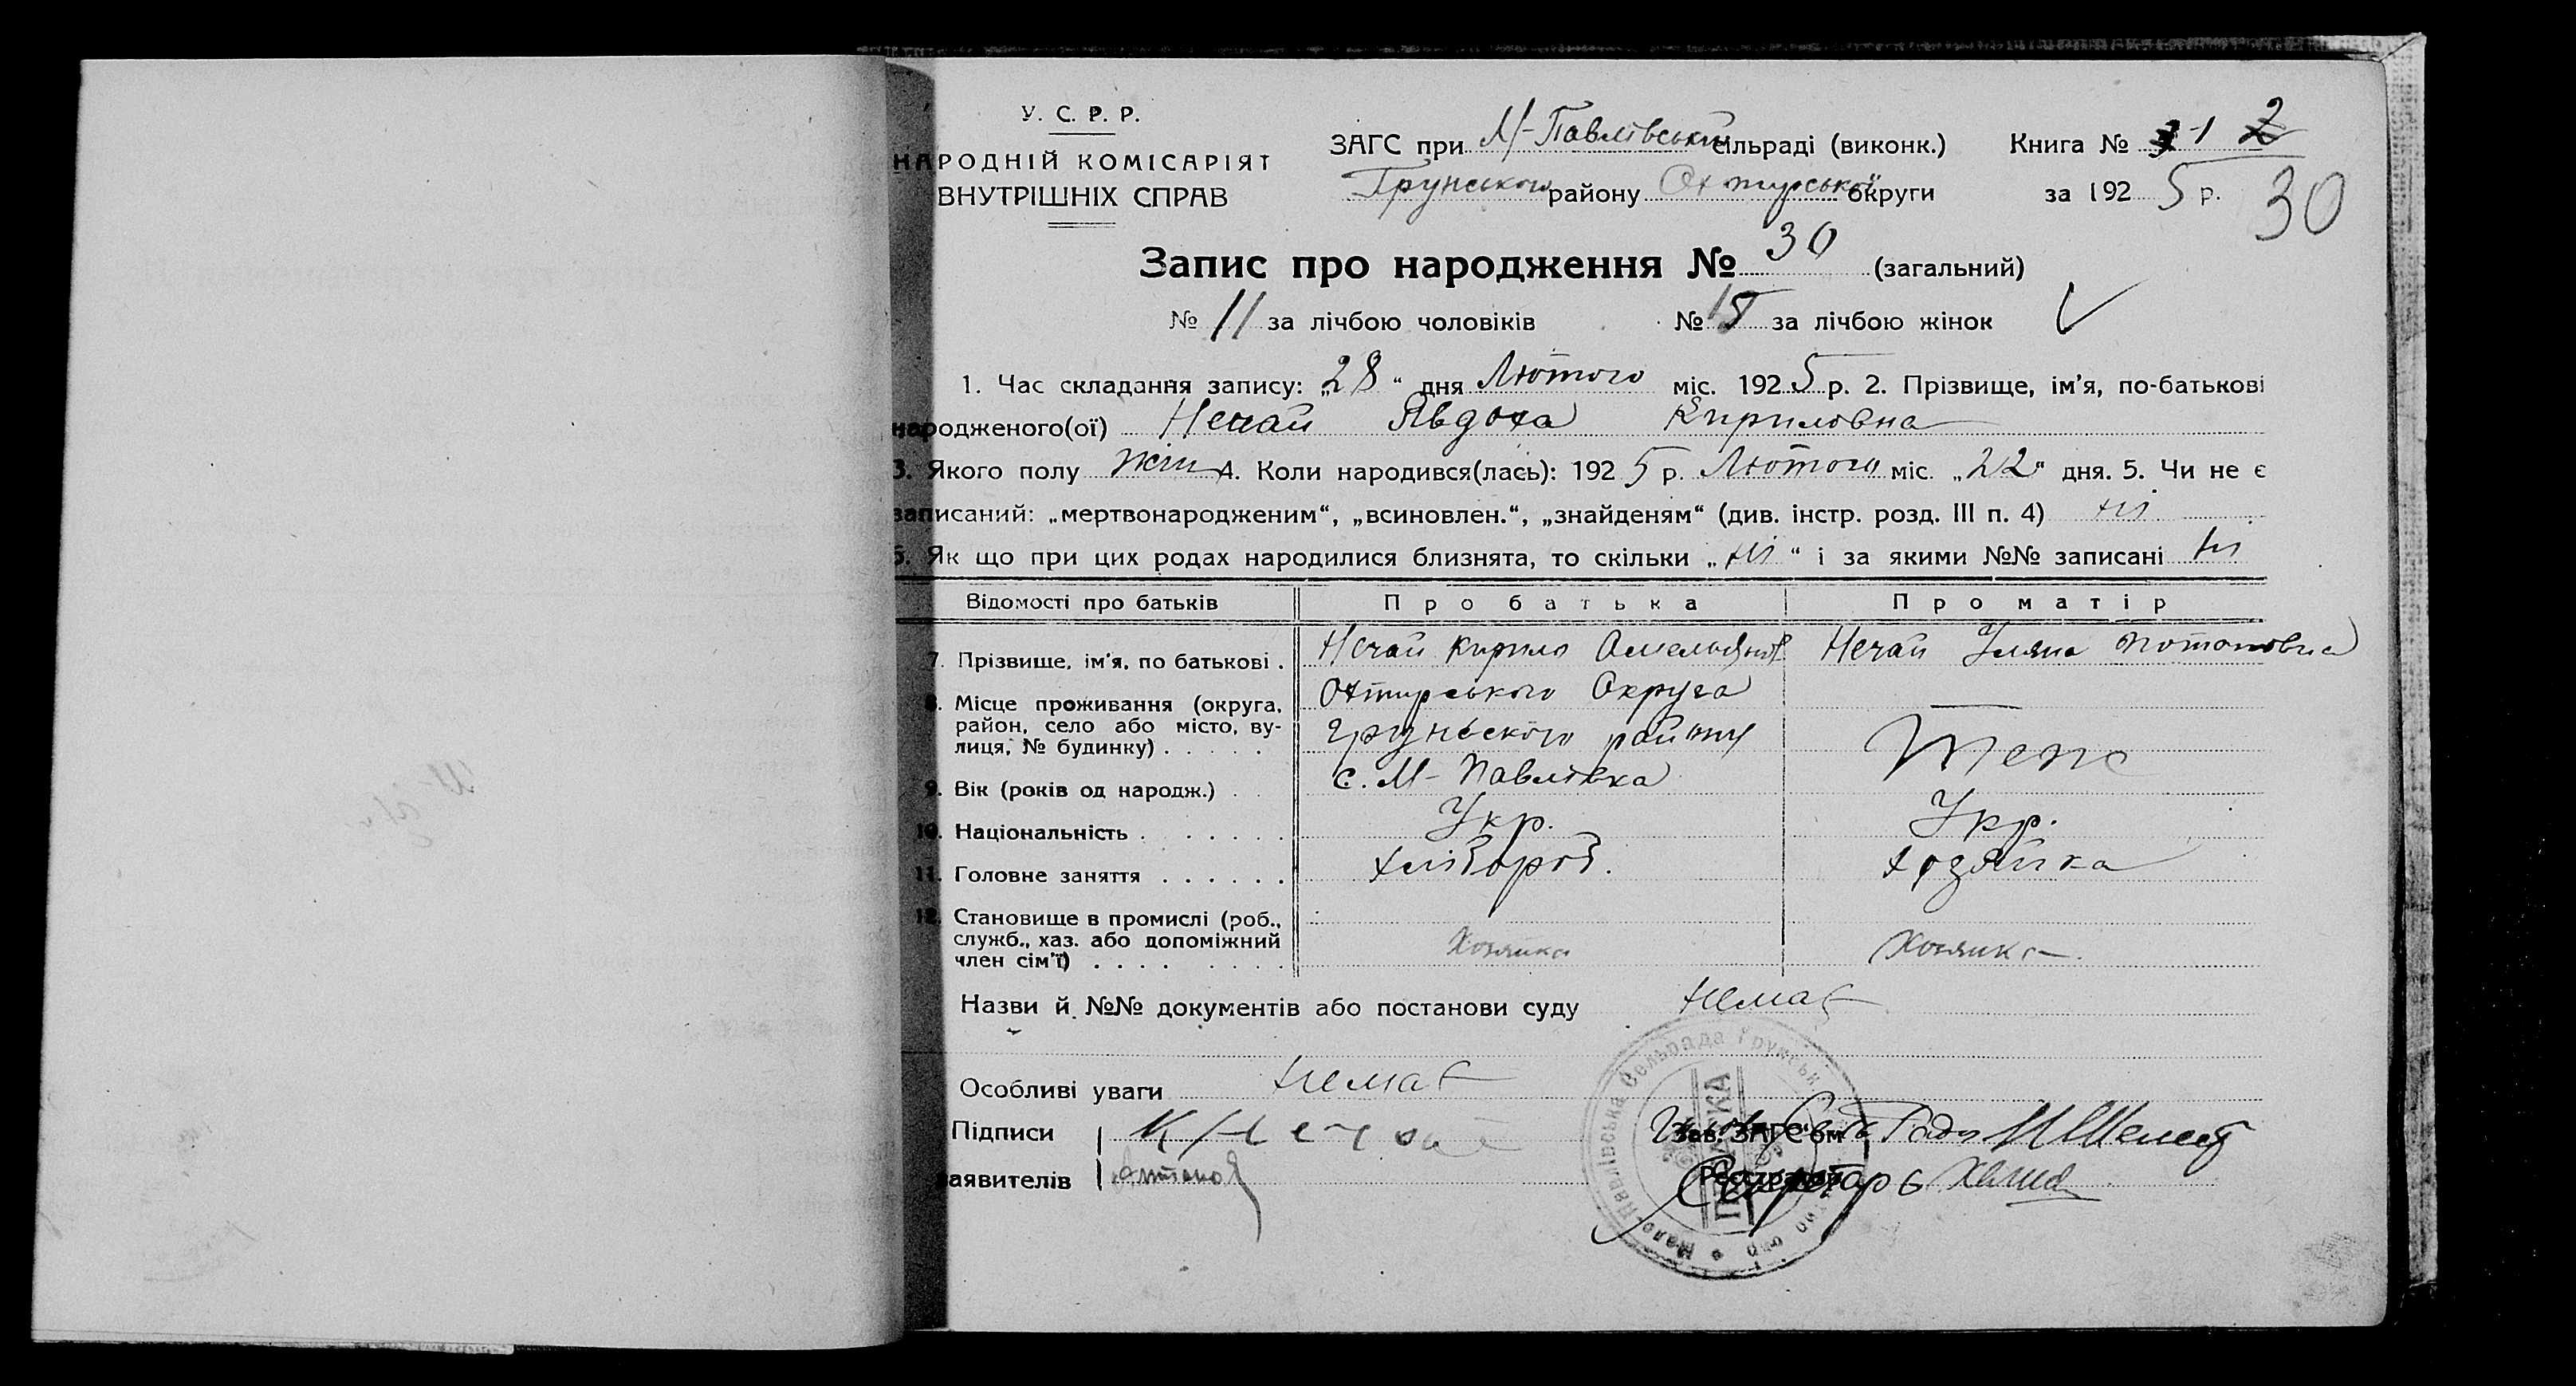 У. С. Р. Р.
НАРОДНІЙ КОМІСАРІЯТ
ВНУТРІШНІХ СПРАВ
ЗАГС при М-Павлівській сільраді (виконк.) Книга № 1 2
Грунського району Охтирської округи за 1925 р. 30
Запис про народження № 30 (загальний)
№ 11 за лічбою чоловіків № 15 за лічбою жінок
1. Час складання запису: „28“ дня Лютого міс. 1925 р. 2. Прізвище, ім'я, по-батькові
народженого(ої) Нечай Явдоха Кириловна
3. Якого полу жін 4. Коли народився(лась): 1925 р. Лютого міс. „22“ дня. 5. Чи не є
записаний: „мертвонародженим“, „всиновлен.“, „знайденям“ (див. інстр. розд. III п. 4) ні
6. Як що при цих родах народилися близнята, то скільки „ні“ і за якими №№ записані ні
Відомості про батьків Про батька Про матір
7. Прізвище, ім'я, по батькові . Нечай Кирило Нечай Уляна Потаповна
8. Місце проживання (округа, Охтирського Округа
район, село або місто, ву-
лиця, № будинку) . . . . . Грунського району Теж
9. Вік (років од народж.) . . с. М-Павлівка
10. Національність . . . . . Укр. Укр.
11. Головне заняття . . . . . . хлібороб. хозяйка
12. Становище в промислі (роб.,
служб., хаз. або допоміжний
член сім'ї) . . . . . . . . Хозяика
Назви й №№ документів або постанови суду немає
Особливі уваги немає
Підписи К Нечай Зав. ЗАГС'ом Голова Сель Ради
заявителів Реєстратор Секретар
Мало-Павлівська Сельрада Грунськ